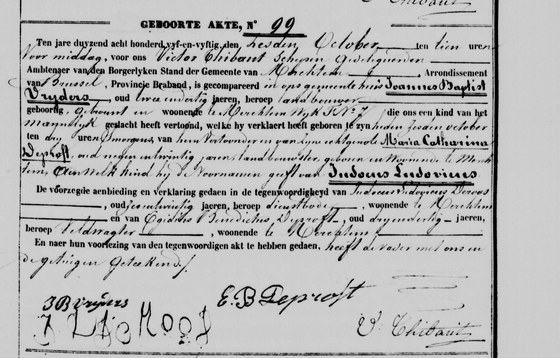 V. Thibaut
GEBOORTE AKTE, N° 99
Ten jare duyzend acht honderd vyf-en-vyftig, den sesden October ten tien uren
voor middag, voor ons Victor Thibaut Schepen Gedelegeerden
Ambtenaer van den Borgerlyken Stand der Gemeente van Merchtem, Arrondissement
van Brussel, Provincie Braband, is gecompareerd in ons gemeente huis Joannes Baptist
Vrijders, oud twee endertig jaeren, beroep landbouwer
geboortig, gebeurt en woonende te Merchtem Wyk N° 7 die ons een kind van het
mannelyk geslacht heeft vertoond, welke hy verklaert heeft geboren te zyn heden sesden october
ten uren s'morgens, van hem Vertoonder en van zyne echtgenote Maria Catharina
Deproft, oud negen entwintig jaren, landbouwster, geboren en woonende te Merch
tem, aen welk kind hy de voornamen geeft van Judocus Ludovicus
De voorzegde aenbieding en verklaring gedaen in de tegenwoordigheyd van Judocus Ludovicus
, oud jaeren, beroep dienstbode, woonende te Merchtem
en van Egidius Benedictus Deproft, oud dryendertig jaeren,
beroep veldwagter, woonende te Merchtem
En naer hun voorlezing van den tegenwoordigen akt te hebben gedaen, heeft de vader met ons en
de getuigen geteekend
J B Vrijders
E. B Deproft
V. Thibaut